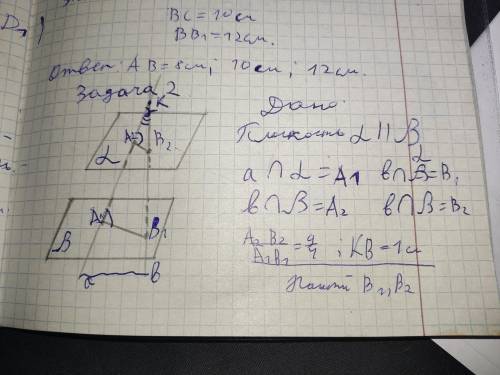 D₁)
BC = 10см
BB₁ = 12см.
Ответ: AB = 8см; 10см; 12см.
Задача 2
K
A2
B₂
L
A1
B₁
B
a
b
Дано:
Плоскость L || B
a ∩ L = A1
b ∩ L = B₁
b ∩ B = A₂
b ∩ B = B₂
A₂B₂ / A₁B₁ = 9/4 ; KB = 1см
Найти B₁,B₂